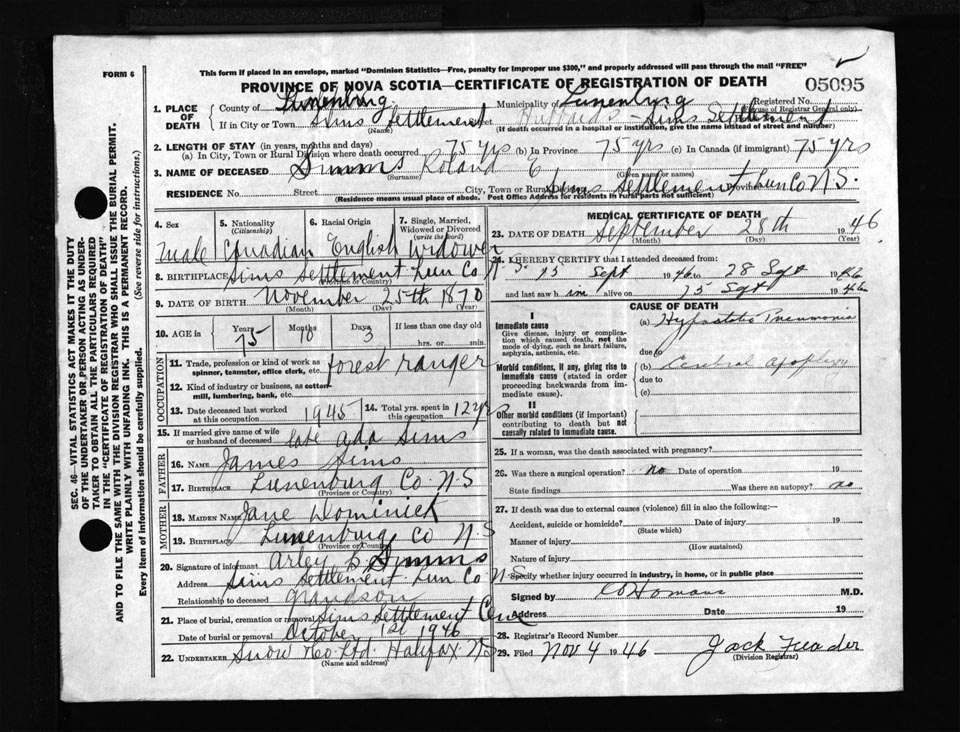 FORM 6
This form if placed in an envelope, marked "Dominion Statistics—Free, penalty for improper use $300," and properly addressed will pass through the mail "FREE"
PROVINCE OF NOVA SCOTIA—CERTIFICATE OF REGISTRATION OF DEATH
05095
1. PLACE OF DEATH
County of Lunenburg. Municipality of Lunenburg Registered No.
(For use of Registrar General only)
If in City or Town Sims Settlement Street Hubbards - Sims Settlement
(Name) (If death occurred in a hospital or institution, give the name instead of street and number)
2. LENGTH OF STAY (in years, months and days)
(a) In City, Town or Rural Division where death occurred 75 yrs (b) In Province 75 yrs (c) In Canada (if immigrant) 75 yrs
3. NAME OF DECEASED Simms Roland E
(Surname) (Given name or names)
RESIDENCE No. Street City, Town or Rural Division Sims Settlement Province Lun Co N.S.
(Residence means usual place of abode. Post Office Address for residents in rural parts not sufficient)
4. Sex 5. Nationality (Citizenship) 6. Racial Origin 7. Single, Married, Widowed or Divorced (write the word)
male Canadian English Widower
8. BIRTHPLACE Sims Settlement Lun Co N.S.
(Province or Country)
9. DATE OF BIRTH November 25th 1870
(Month) (Day) (Year)
10. AGE in Years Months Days If less than one day old
75 10 3 hrs. or min.
OCCUPATION
11. Trade, profession or kind of work as spinner, teamster, office clerk, etc. forest ranger
12. Kind of industry or business, as cotton mill, lumbering, bank, etc.
13. Date deceased last worked at this occupation 1945 14. Total yrs. spent in this occupation 12 yr
15. If married give name of wife or husband of deceased late Ada Sims
FATHER
16. NAME James Sims
17. BIRTHPLACE Lunenburg Co. N.S
(Province or Country)
MOTHER
18. MAIDEN NAME Jane Dominick
19. BIRTHPLACE Lunenburg Co N.S
(Province or Country)
20. Signature of informant Arley B. Simms
Address Sims Settlement Lun Co N.S
Relationship to deceased grandson
21. Place of burial, cremation or removal Sims Settlement Cem
Date of burial or removal October 1st 1946
22. UNDERTAKER Snow & Co Ltd. Halifax N.S
(Name and address)
MEDICAL CERTIFICATE OF DEATH
23. DATE OF DEATH September 28th 1946
(Month) (Day) (Year)
24. I HEREBY CERTIFY that I attended deceased from:
15 Sept 1946 to 28 Sept 1946
and last saw him alive on 15 Sept 1946
CAUSE OF DEATH
I
Immediate cause
Give disease, injury or complication which caused death, not the mode of dying, such as heart failure, asphyxia, asthenia, etc.
(a) Hypostatic Pneumonia
due to
Morbid conditions, if any, giving rise to immediate cause (stated in order proceeding backwards from immediate cause).
(b) Cerebral apoplexy
due to
(c)
II
Other morbid conditions (if important) contributing to death but not causally related to immediate cause.
25. If a woman, was the death associated with pregnancy?
26. Was there a surgical operation? no Date of operation 19
State findings Was there an autopsy? no
27. If death was due to external causes (violence) fill in also the following:—
Accident, suicide or homicide? Date of injury 19
(State which)
Manner of injury
(How sustained)
Nature of injury
Specify whether injury occurred in industry, in home, or in public place
Signed by M.D.
Address Date 19
28. Registrar's Record Number
29. Filed Nov 4 1946 Jack
(Division Registrar)
SEC. 46—VITAL STATISTICS ACT MAKES IT THE DUTY
OF THE UNDERTAKER OR PERSON ACTING AS UNDER-
TAKER TO OBTAIN ALL THE PARTICULARS REQUIRED
IN THE "CERTIFICATE OF REGISTRATION OF DEATH"
AND TO FILE THE SAME WITH THE DIVISION REGISTRAR WHO SHALL ISSUE THE BURIAL PERMIT.
WRITE PLAINLY WITH UNFADING INK. THIS IS A PERMANENT RECORD.
Every item of information should be carefully supplied. (See reverse side for instructions.)